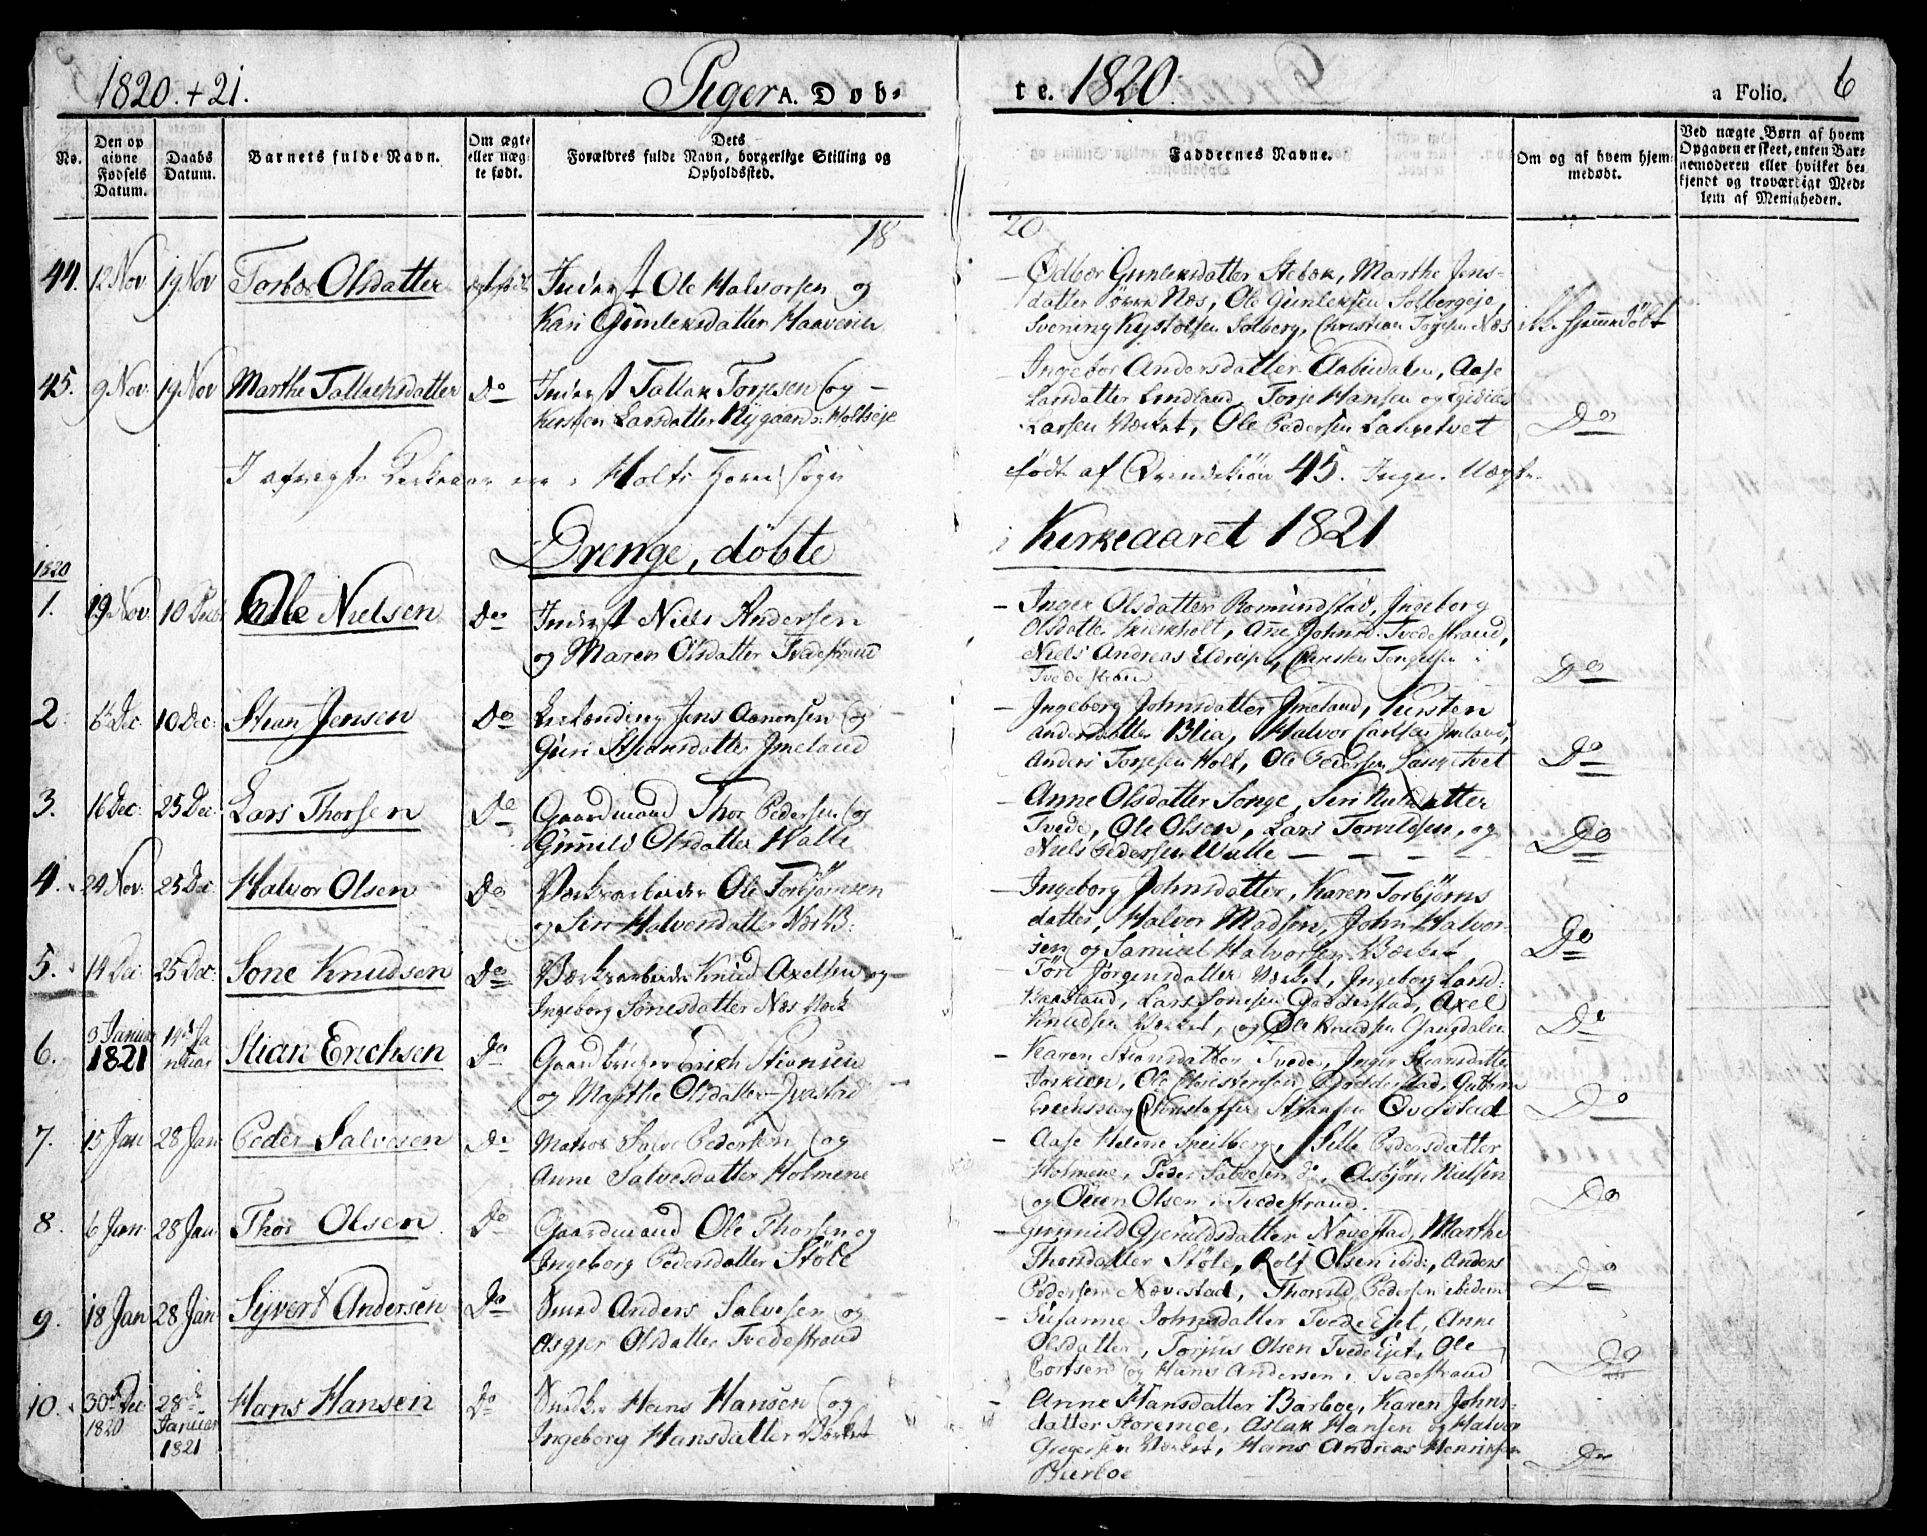 1820. + 21.
Piger A. Døb-
te. 1820.
a Folio. 6
No.
Den op
givne
Fødsels
Datum.
Daabs
Datum.
Barnets fulde Navn.
Om ægte
eller uæg-
te født.
Dets
Forældres fulde Navn, borgerlige Stilling og
Opholdssted.
Faddernes Navne.
Om og af hvem hjem-
medøbt.
Ved uægte Børn af hvem
Opgaven er skeet, enten Bar-
nemoderen eller hvilket be-
kjendt og troværdigt Med-
lem af Menigheden.
18
20
44. 12 Nov 19 Nov Torbor Olsdatter
Inderst Ole Halvorsen og
Kari Gunleksdatter Haaverin
Ødbor Gunleksdatter Stebek, Marthe Jens-
datter øvre Næs, Ole Gunleksen Solbergeje,
Svening Kystolsen Solberg, Christian Torjesen Næs
ikke hjemmedøbt
45. 9 Nov. 19 Nov Marthe Tallaksdatter Do
Inderst Tallak Torjesen og
Kirsten Larsdatter Nygaard Holtseje
Ingebor Andersdatter Aabudalen, Aase
Larsdatter Lindland, Torje Hansen og Egidius
Larsen Værket, Ole Pedersen Langetvet
Do
I afvigte Kirkeaar ere i Holts Hoved Sogn
født af Qvindekiøn 45. Ingen Uægte.
Drenge, döbte
i Kirkeaaret 1821
1820
1. 19 Nov. 10 Decb Ole Nielsen Do
Inderst Niels Andersen
og Maren Olsdatter Tvedestrand
Inger Olsdatter Romundstad, Ingeborg
Olsdatter, Anne Johnsd. Tvedestrand,
Niels Andreas, Christen Tongelsen i
Tvedestrand
Do
2. 6 Dec. 10 Dec: Stian Jensen Do
Jens Aanonsen og
Guri Stiansdatter Imeland
Ingeborg Johnsdatter Imeland, Kirsten
Andersdatter Blia, Halvor Carlsen Imland,
Anders Torjesen Holt, Ole Pedersen Langetvet
Do
3. 16 Dec: 25 Dec: Lars Thorsen Do
Gaardmand Thor Pedersen og
Gunnild Olsdatter Walle
Anne Olsdatter Songe, Siri Nielsdatter
Tvede, Ole Olsen, Lars Torvildsen, og
Niels Pedersen Walle
Do
4. 24 Nov: 25 Dec Halvor Olsen Do
Værksarbeider Ole Torbjørnsen
og Siri Halvorsdatter
Ingeborg Johnsdatter, Karen Torbjørns
datter, Halvor Madsen, John Halvor-
sen og Samuel Halvorsen Værket
Do
5. 14 Dec 25 Dec: Sone Knudsen Do
Værksarbeider Knud Axelsen og
Ingeborg Sonesdatter Næs Værk
Töre Jörgensdatter Værket, Ingeborg Larsd:
Baasland, Lars Sonesen Dødderstad, Axel
Knudsen Værket, og Ole Knudsen Gangdalen
Do
6. 3 Januar 1821 14de Januar Stian Erichsen Do
Gaardbruger Erich Stiansen
og Marthe Olsdatter Qvastad
Karen Stiansdatter Tvede, Inger Stiansdatter
Torkien, Ole Christensen Dødderstad, Guttorm
Erichsen og Christoffer Stiansen Qvastad
Do
7. 15 Jan 28 Jan Peder Salvesen Do
Matros Salve Pedersen og
Anne Salvesdatter Holmene
Aase Helene Speilberg, Sille Pedersdatter
Holmene, Peder Salvesen do, Asbjørn Nielsen
og Ouen Olsen i Tvedestrand.
Do
8. 6 Jan 28 Jan Thor Olsen Do
Gaardmand Ole Thorsen og
Ingeborg Pedersdatter Stöle
Gunnild Gjeruldsdatter Nævestad, Marthe
Thorsdatter Stöle, Rolf Olsen ibid:, Anders
Pedersen Nævestad, Thorvild Pedersen ibidem
Do
9. 18 Jan 28 Jan Syvert Andersen Do
Smed Anders Salvesen og
Asgjer Olsdatter Tvedestrand
Susanne Johnsdatter Tvede Ejet, Anne
Olsdatter, Torjus Olsen Tvede Ejet, Ole
Cortsen og Hans Andersen i Tvedestrand
Do
10. 30te Dec 1820 28de Januar 1821 Hans Hansen Do
Hans Hansen og
Ingeborg Hansdatter Værket
Anne Hansdatter Barboe, Karen Johns-
datter Storemoe, Aslak Hansen og Halvor
Gregersen Værket, Hans Andreas Henriksen
Barboe
Do